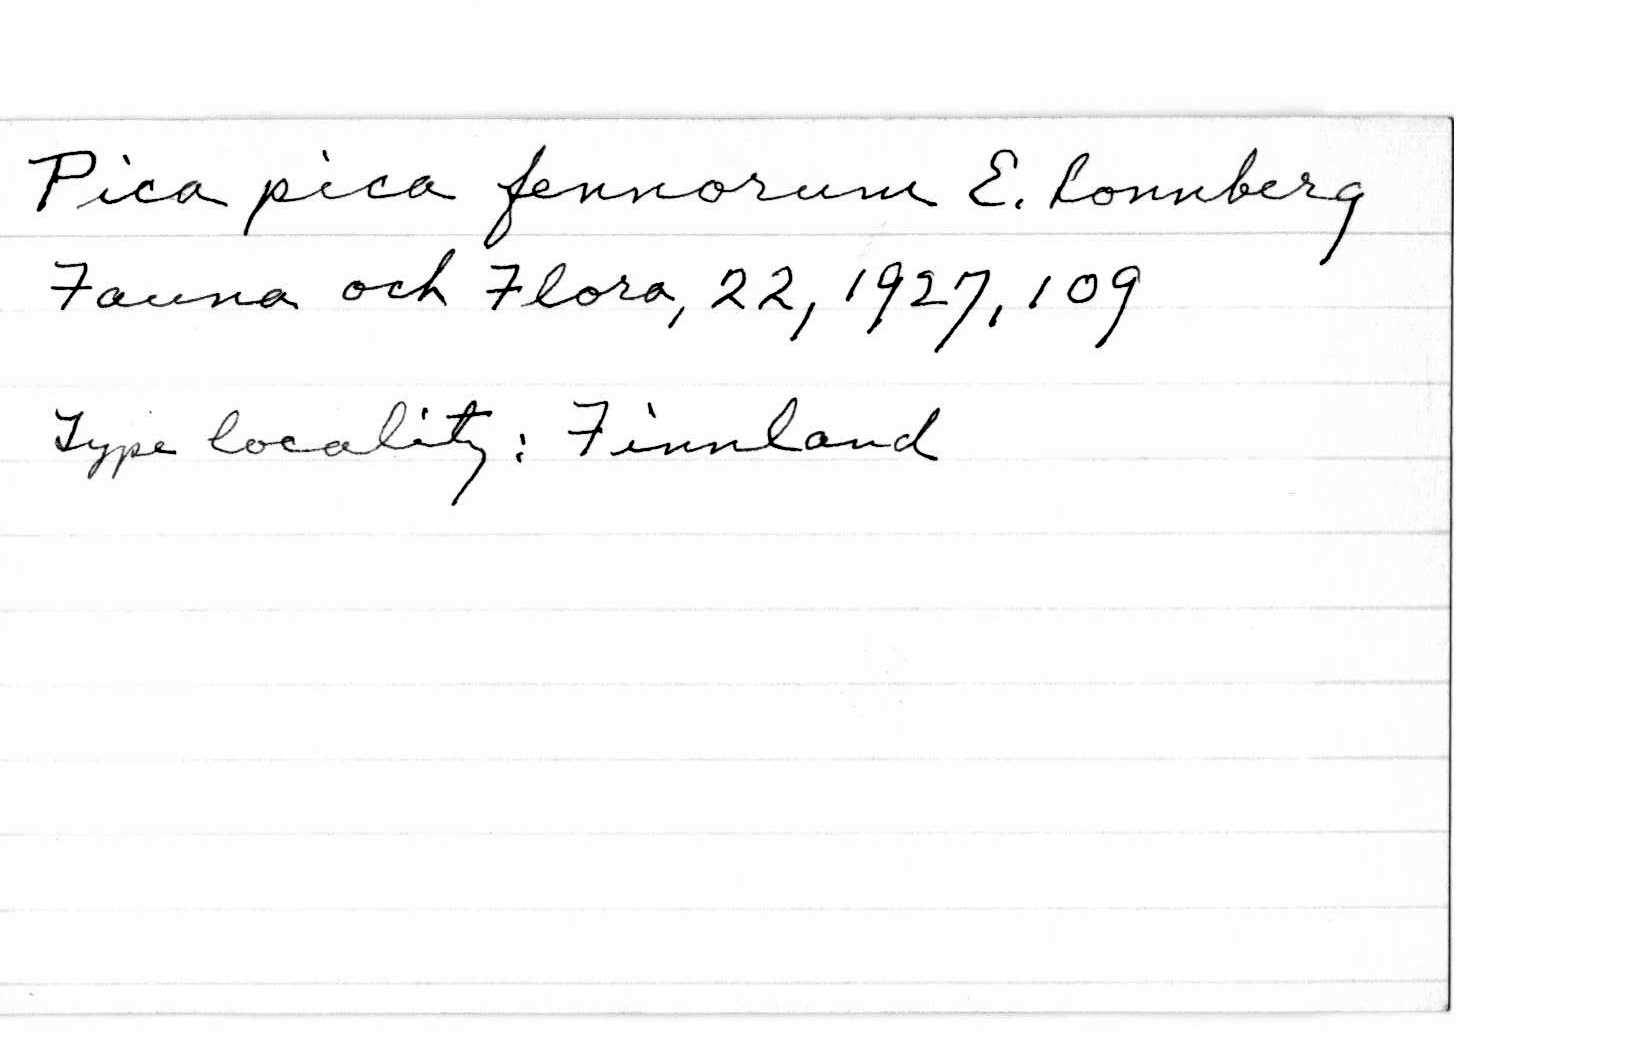 Pica pica fennorum E. Lonnberg
Fauna och Flora, 22, 1927, 109
Type locality: Finnland